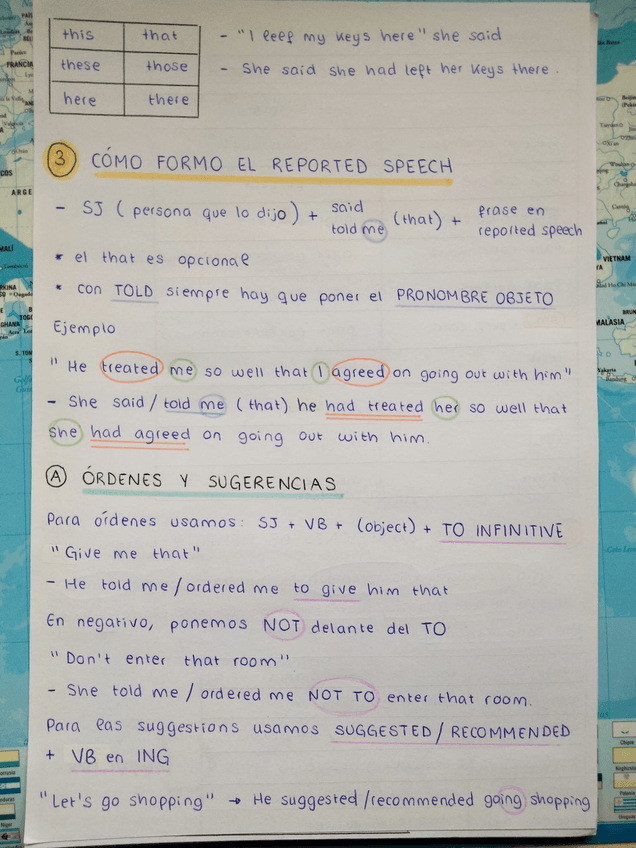 this that - "I left my keys here" she said
these those - She said she had left her keys there.
here there
3 CÓMO FORMO EL REPORTED SPEECH
- SJ (persona que lo dijo) + said / told me (that) + frase en reported speech
* el that es opcional
* con TOLD siempre hay que poner el PRONOMBRE OBJETO
Ejemplo
"He treated me so well that I agreed on going out with him"
- She said/told me (that) he had treated her so well that
she had agreed on going out with him.
A ÓRDENES Y SUGERENCIAS
Para órdenes usamos: SJ + VB + (object) + TO INFINITIVE
"Give me that"
- He told me/ordered me to give him that
En negativo, ponemos NOT delante del TO
"Don't enter that room"
- She told me/ordered me NOT TO enter that room.
Para las suggestions usamos SUGGESTED/RECOMMENDED
+ VB en ING
"Let's go shopping" → He suggested/recommended going shopping
FRANCIA
VIETNAM
MALASIA
GHANA